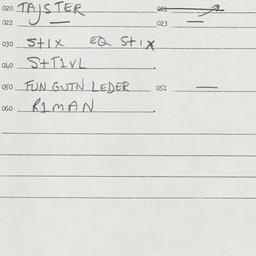 020 TAJSTER 021
022 — 023 —
030 STIX EQ STIX
040 STIVL
050 FUN GUTN LEDER 051 —
060 RIMAN